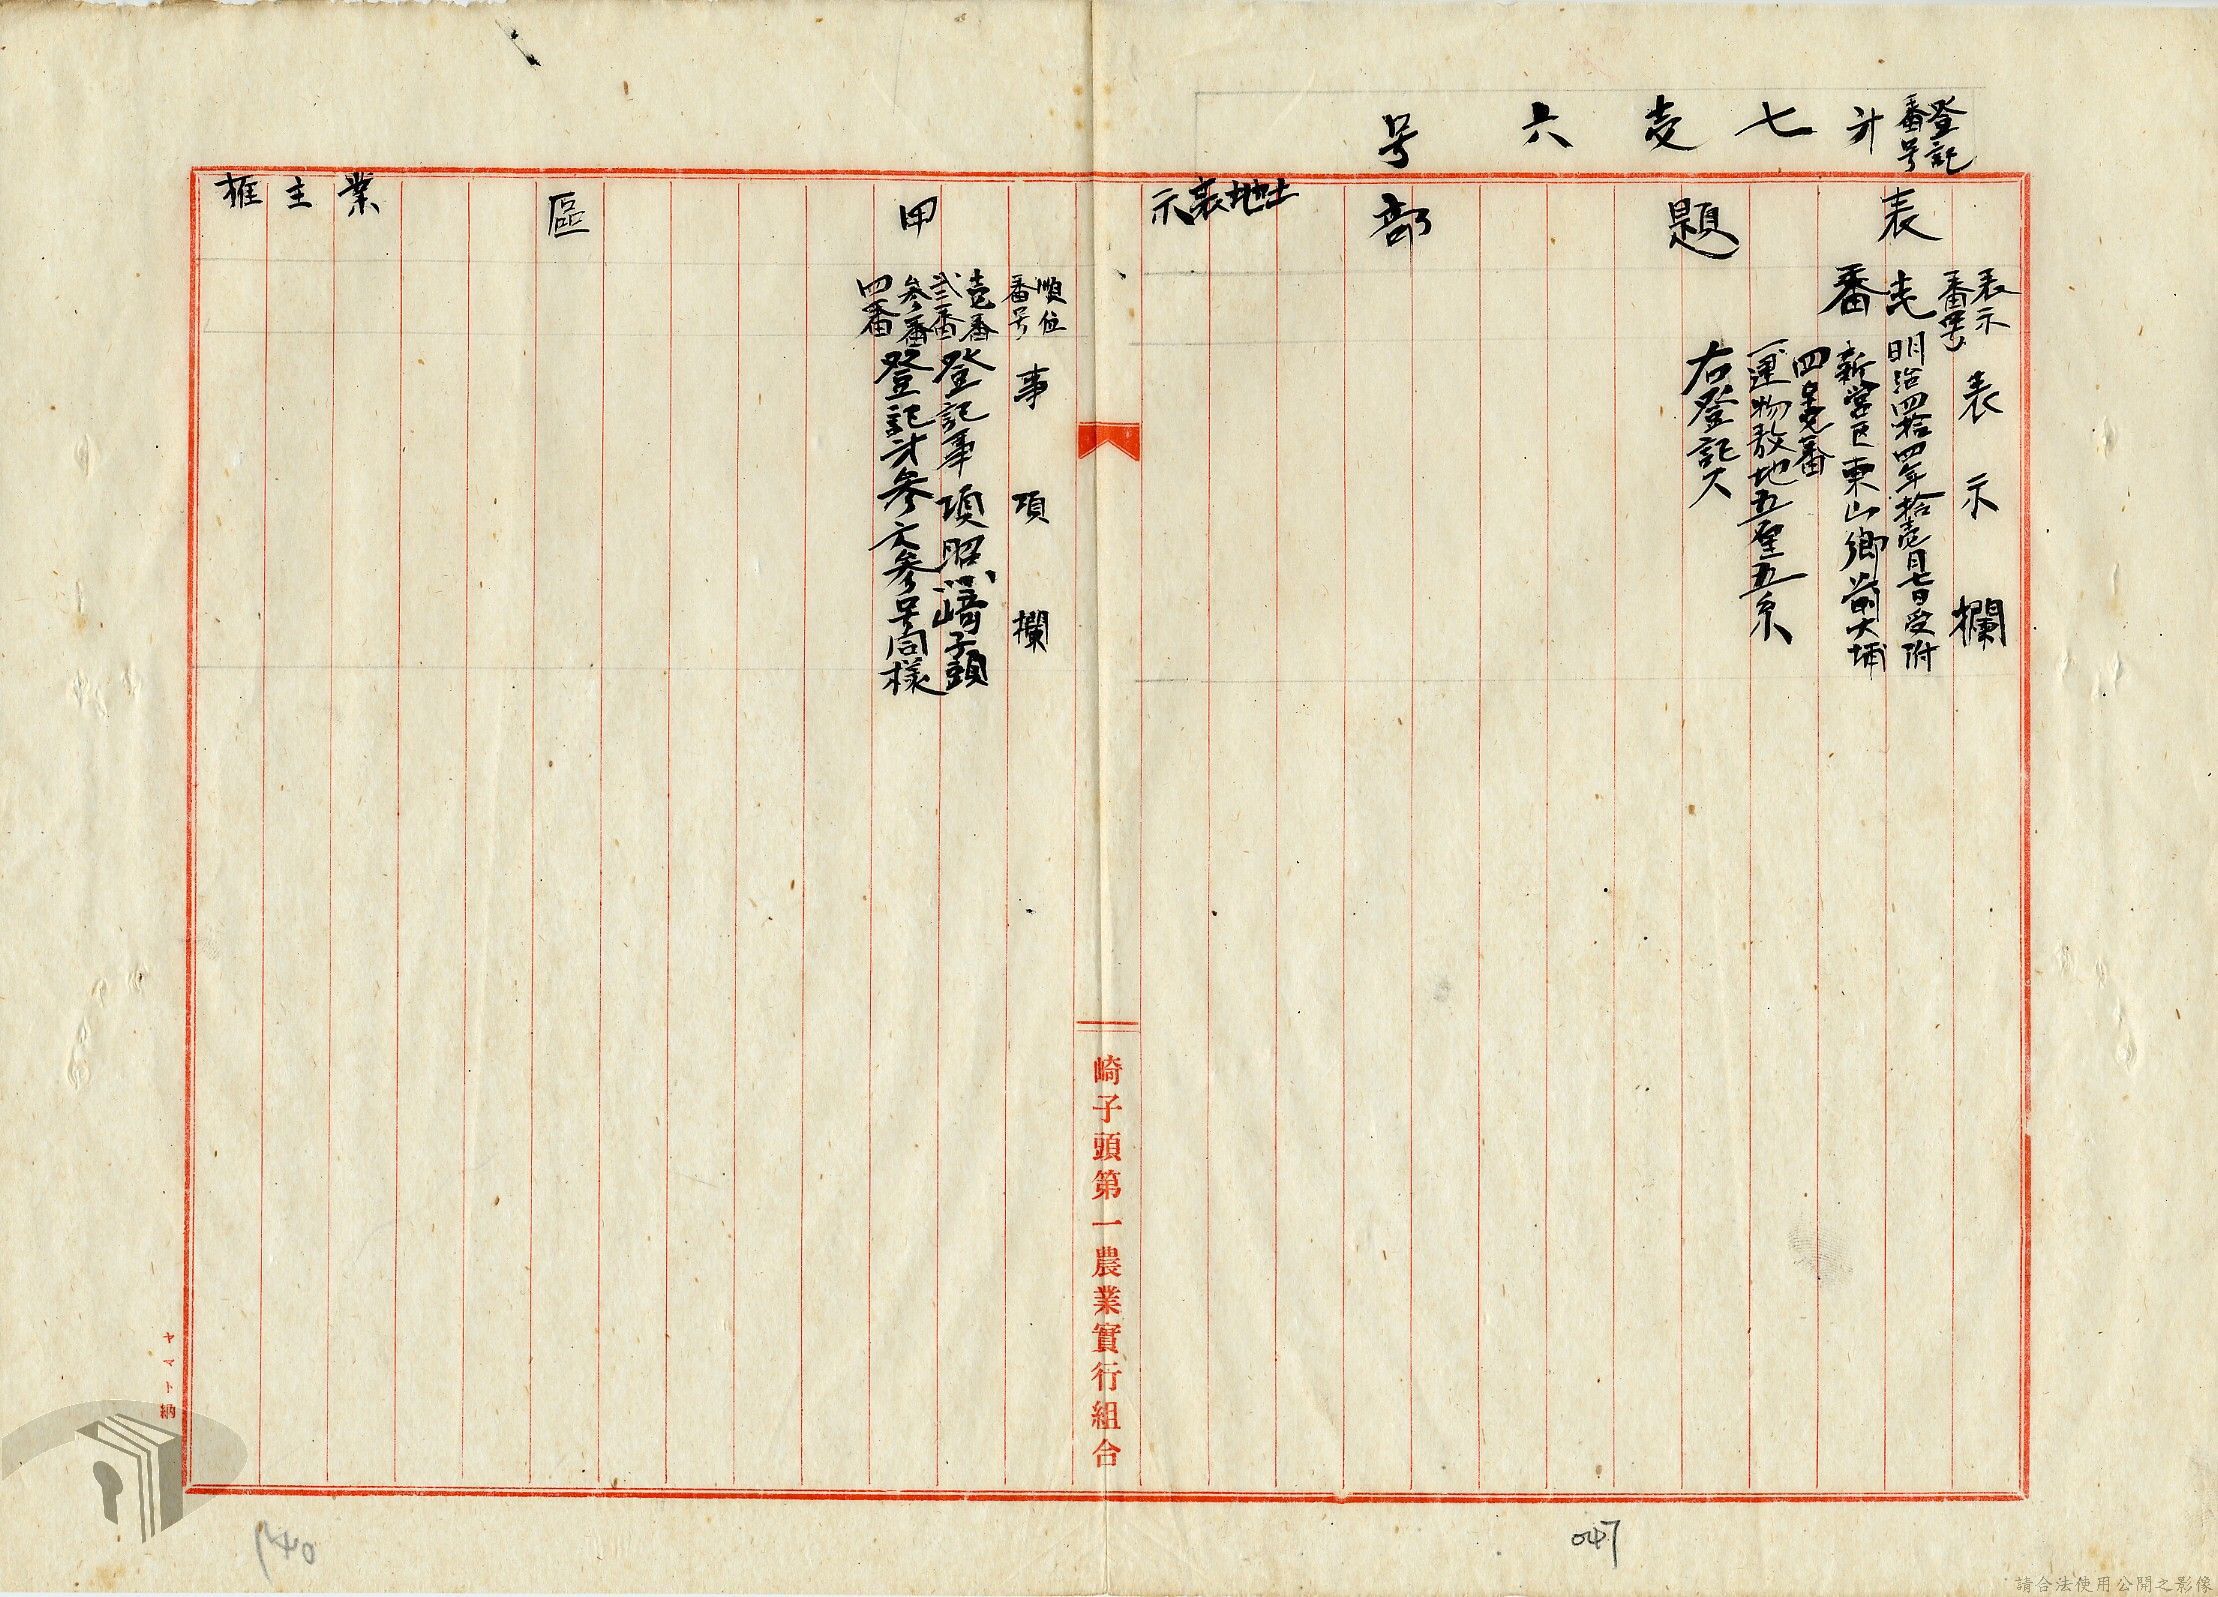 登記
番号
才七壹六号
表題部
土地表示
表示
番号
表示欄
壱番
明治四拾四年拾壱月七日受附
新営区東山鄉前大埔
四
番
一建物敷地五厘五糸
右登記ス
崎子頭第一農業實行組合
甲區
業主権
順位
番号
事項欄
壱番
弐番
登記事項昭
崎子頭
参番
四番
登記才参六参号同様
ヤマト納
047
140
請合法使用公開之影像